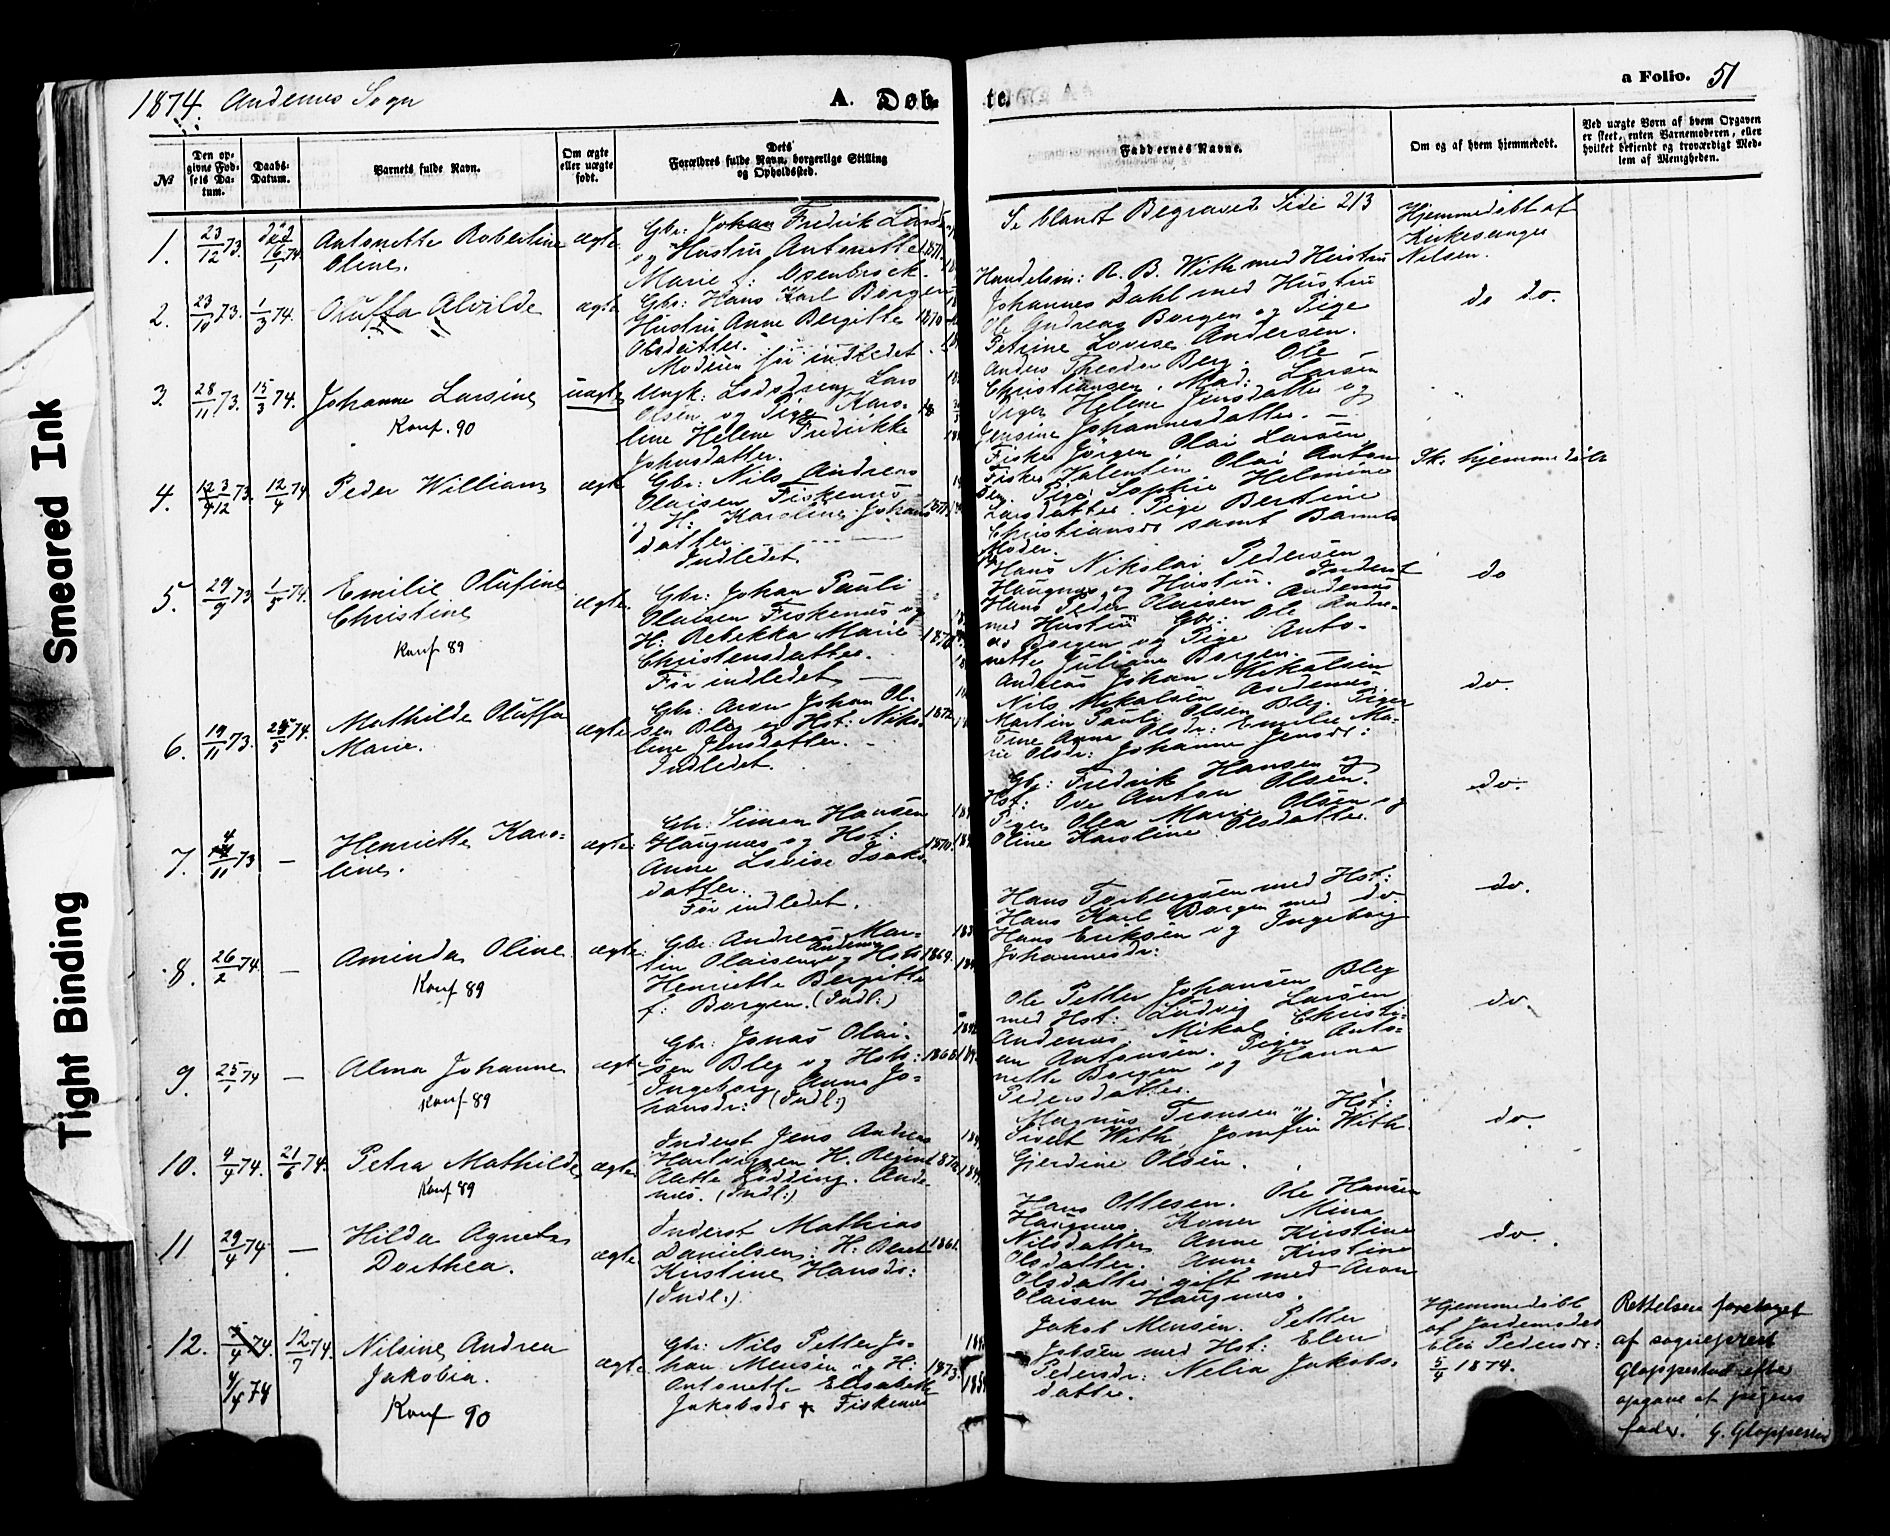 Smeared Ink
Tight Binding
1874. Andenes Sogn
A. Døb-
te.
a Folio. 51
№
Den op-
givne Fød-
sels Da-
tum.
Daabs-
Datum.
Barnets fulde Navn.
Om ægte
eller uægte
født.
Dets
Forældres fulde Navn, borgerlige Stilling
og Opholdssted.
Faddernes Navne.
Om og af hvem hjemmedøbt.
Ved uægte Børn af hvem Opgaven
er skeet, enten Barnemoderen, eller
hvilket bekjendt og troværdigt Med-
lem af Menigheden.
1.
23/12 73.
død
16/1 74
Antonette Robertine
Oline.
ægte
Gbr: Johan Fredrik
og Hustru Antonette
Marie f:
1871.
Se blandt Begravede Side 213
Hjemmedøbt af
Kirkesanger
Nilsen.
2.
23/10 73.
1/3 74.
Oluffa Alvilde
ægte
Gbr: Hans Karl Borgen
Hustru Anne Bergitte
Olsdatter.
Moderen før indledet
1870
Handelsm: R. B. With med Hustru
Johannes Dahl med Hustru
Ole Andreas Borgen og Pige
Petrine Lovise Andersen.
do do.
3.
28/11 73.
15/3 74.
Johanne Larsine
Konf. 90
uægte
Ungk: Lars
Olsen og Pige Karo-
line Helene Fredrikke
Johnsdatter.
Anders Theodor Berg. Ole
Christiansen. Mad: Larsen
Piger Helene Jensdatter og
Jensine Johannesdatter.
4.
3/12 73.
12/4 74
Peder William
ægte
Gbr: Nils Andreas
Olaisen Fiskenes
og H: Karoline Johans
datter.
Indledet.
1871
Fisker Jørgen Olai Larsen
Fisker Valentin Olai Anton
sen. Pige Sophie Helmine
Larsdatter Pige Bertine
Christiansdr samt Barnets
Moder.
Ik. hjemmedøbt
5.
29/9 73
1/5 74.
Emilie Olufine
Christine
Konf 89
ægte.
Gbr: Johan Pauli
Olaisen Fiskenes og
H: Rebekka Marie
Christensdatter.
Før indledet
Hans Nikolai Pedersen
Haugnes og Hustru. Inderst
Hans Peder Olaisen Andenes
med Hustru Gbr: Ole Andre-
as Borgen og Pige Anto-
nette Juliane Borgen.
do
6.
19/11 73.
25/5 74.
Mathilde Oluffa
Marie.
ægte
Gbr: Aron Johan Ol-
sen Bleg og Hst: Niko-
line Jensdatter.
Indledet.
1872
Andreas Johan Mikalsen
Nils Mikalsen Andenes
Martin Pauli Olsen Bleg. Piger
Trine Anna Olsdr: Emilie Ma-
rie Olsdr: Johanne Jensdr:
do.
7.
4/11 73
—
Henriette Karo-
line.
ægte.
Gbr: Simon Hansen
Haugnes og Hst:
Anne Lovise Isaks-
datter.
Før indledet.
1870.
Gbr: Fredrik Hansen og
Hst: Ove Anton Olsen.
Piger Olea Marie Olsen og
Oline Karoline Olsdatter
do.
8.
26/2 74
—
Aminda Oline
Konf 89
ægte
Gbr: Andreas Mar-
tin Olaisen Andenes og Hst:
Henriette Bergitte
f: Borgen. (Indl:)
1869.
Hans Torbergsen med Hst:
Hans Karl Borgen med do.
Hans Eriksen og Ingeborg
Johannesdr:
do.
9.
25/1 74
—
Alma Johanne
Konf 89
ægte
Gbr: Jonas Olai-
sen Bleg og Hst:
Ingeborg Anna Jo-
hansdr: (Indl:)
1868
Ole Petter Johansen Bleg
med Hst: Ludvig Larsen
Andenes Mikal Christi-
an Antonsen. Piger Anto-
nette Borgen og Hanna
Pedersdatter.
do.
10.
4/4 74.
21/6 74.
Petra Mathilde
Konf 89
ægte
Inderst Jens Andreas
Hartvigsen H. Regine
Aalte Lødding. Ande-
nes. (Indl:)
Magnus Fransen " Hst:
Sivert With, Josefin With
Gjerdine Olsen.
do.
11
29/4 74
—
Hilda Agneta
Dorthea.
ægte
Inderst Mathias
Danielsen. H. Beret
Kristine Hansdr:
(Indl.)
1861.
Hans Ottesen. Ole Hansen
Haugnes. Koner Mina
Nilsdatter Anne Kirstine
Olsdatter. Anne Kirstine
Olsdatter gift med Aron
Olaisen Haugnes.
do.
12.
4/4 74
12/7 74.
Nilsine Andrea
Jakobia.
Konf 90
ægte
Gbr: Nils Petter Jo-
han Mensen og H:
Antonette Elisabeth
Jakobsdr Fiskenes
1873.
Jakob Mensen. Petter
Jobsen med Hst: Elen
Pedersdr: Nelia Jakobs-
datter.
Hjemmedøbt
af Jordemoder
Elen Pedersdr:
5/4 1874.
Rettelsen foretaget
af sogneprest
Gloppestad efter
opgave af pigens
fader. G. Gloppestad